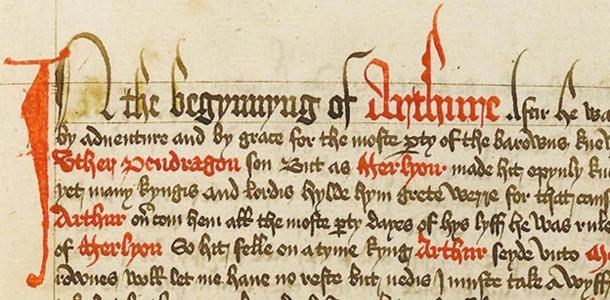 In the begynnyng of Arthure . Aftir he wa
by adventure and by grace for the moste pty of the barowns knew
Uther pendragon son But as Merlyon made hit opynly kn
yet many kyngis and lordis hylde hym grete werre for that caus
Arthur on com hem all the moste pty dayes of hys lyff he was rule
of Merlyon So hit felle on a tyme kyng Arthur seyde unto Me
rownes woll let me have no reste but nedis I muste take a wyff